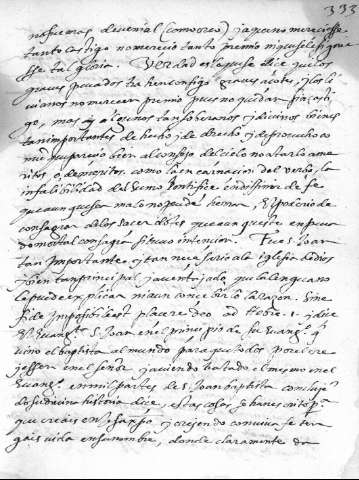 333
no fue mas de venial (como creo) ya que no mereciesse
tanto castigo no merecio tanto premio ni que se le sigue
sse tal gloria. Verdad es lo que se dice que los
graves pecados traen consigo graves açotes, y los li
vianos no merecen premio pues no quedan sin casti
go, mas ay algunos tan soberanos y divinos bienes
tan importantes de hecho y de derecho y de provecho co
mun que parecio bien al consejo del cielo no atarlo a me
ritos o demeritos como la encarnacion del verbo, la
infalibilidad del sumo Pontifice en difinir de fe
que aunque sea malo no puede herrar, El poderio de
consagrar de los sacerdotes que aunque este en peca
do mortal consagra si tuvo intencion. Fue S. Joan
tan importante, y tan necesario a la iglesia de dios
bien tan principal y aventajado, que la lengua no
lo puede explicar ni aun concebirlo la razon. Sine
fide impossibile est placere deo ad Hebre. 1. y dice
el Evangta. S. Joan en el principio de su Evango. q
vino el baptista al mundo para que todos por el cre
jessen en el señor, y aviendo tratado el mesmo en el
Evango. en mil partes de S. Joan baptista concluye
do su divina historia dice, estas cosas se han escrito pa
que creais en Jesu xpo, y creyendo con viva fe ten
gais vida en su nombre, donde claramente da